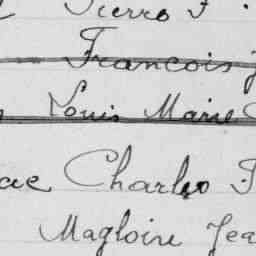 Pierre F
Francois J
Louis Marie
ac Charles F
Magloire Jea